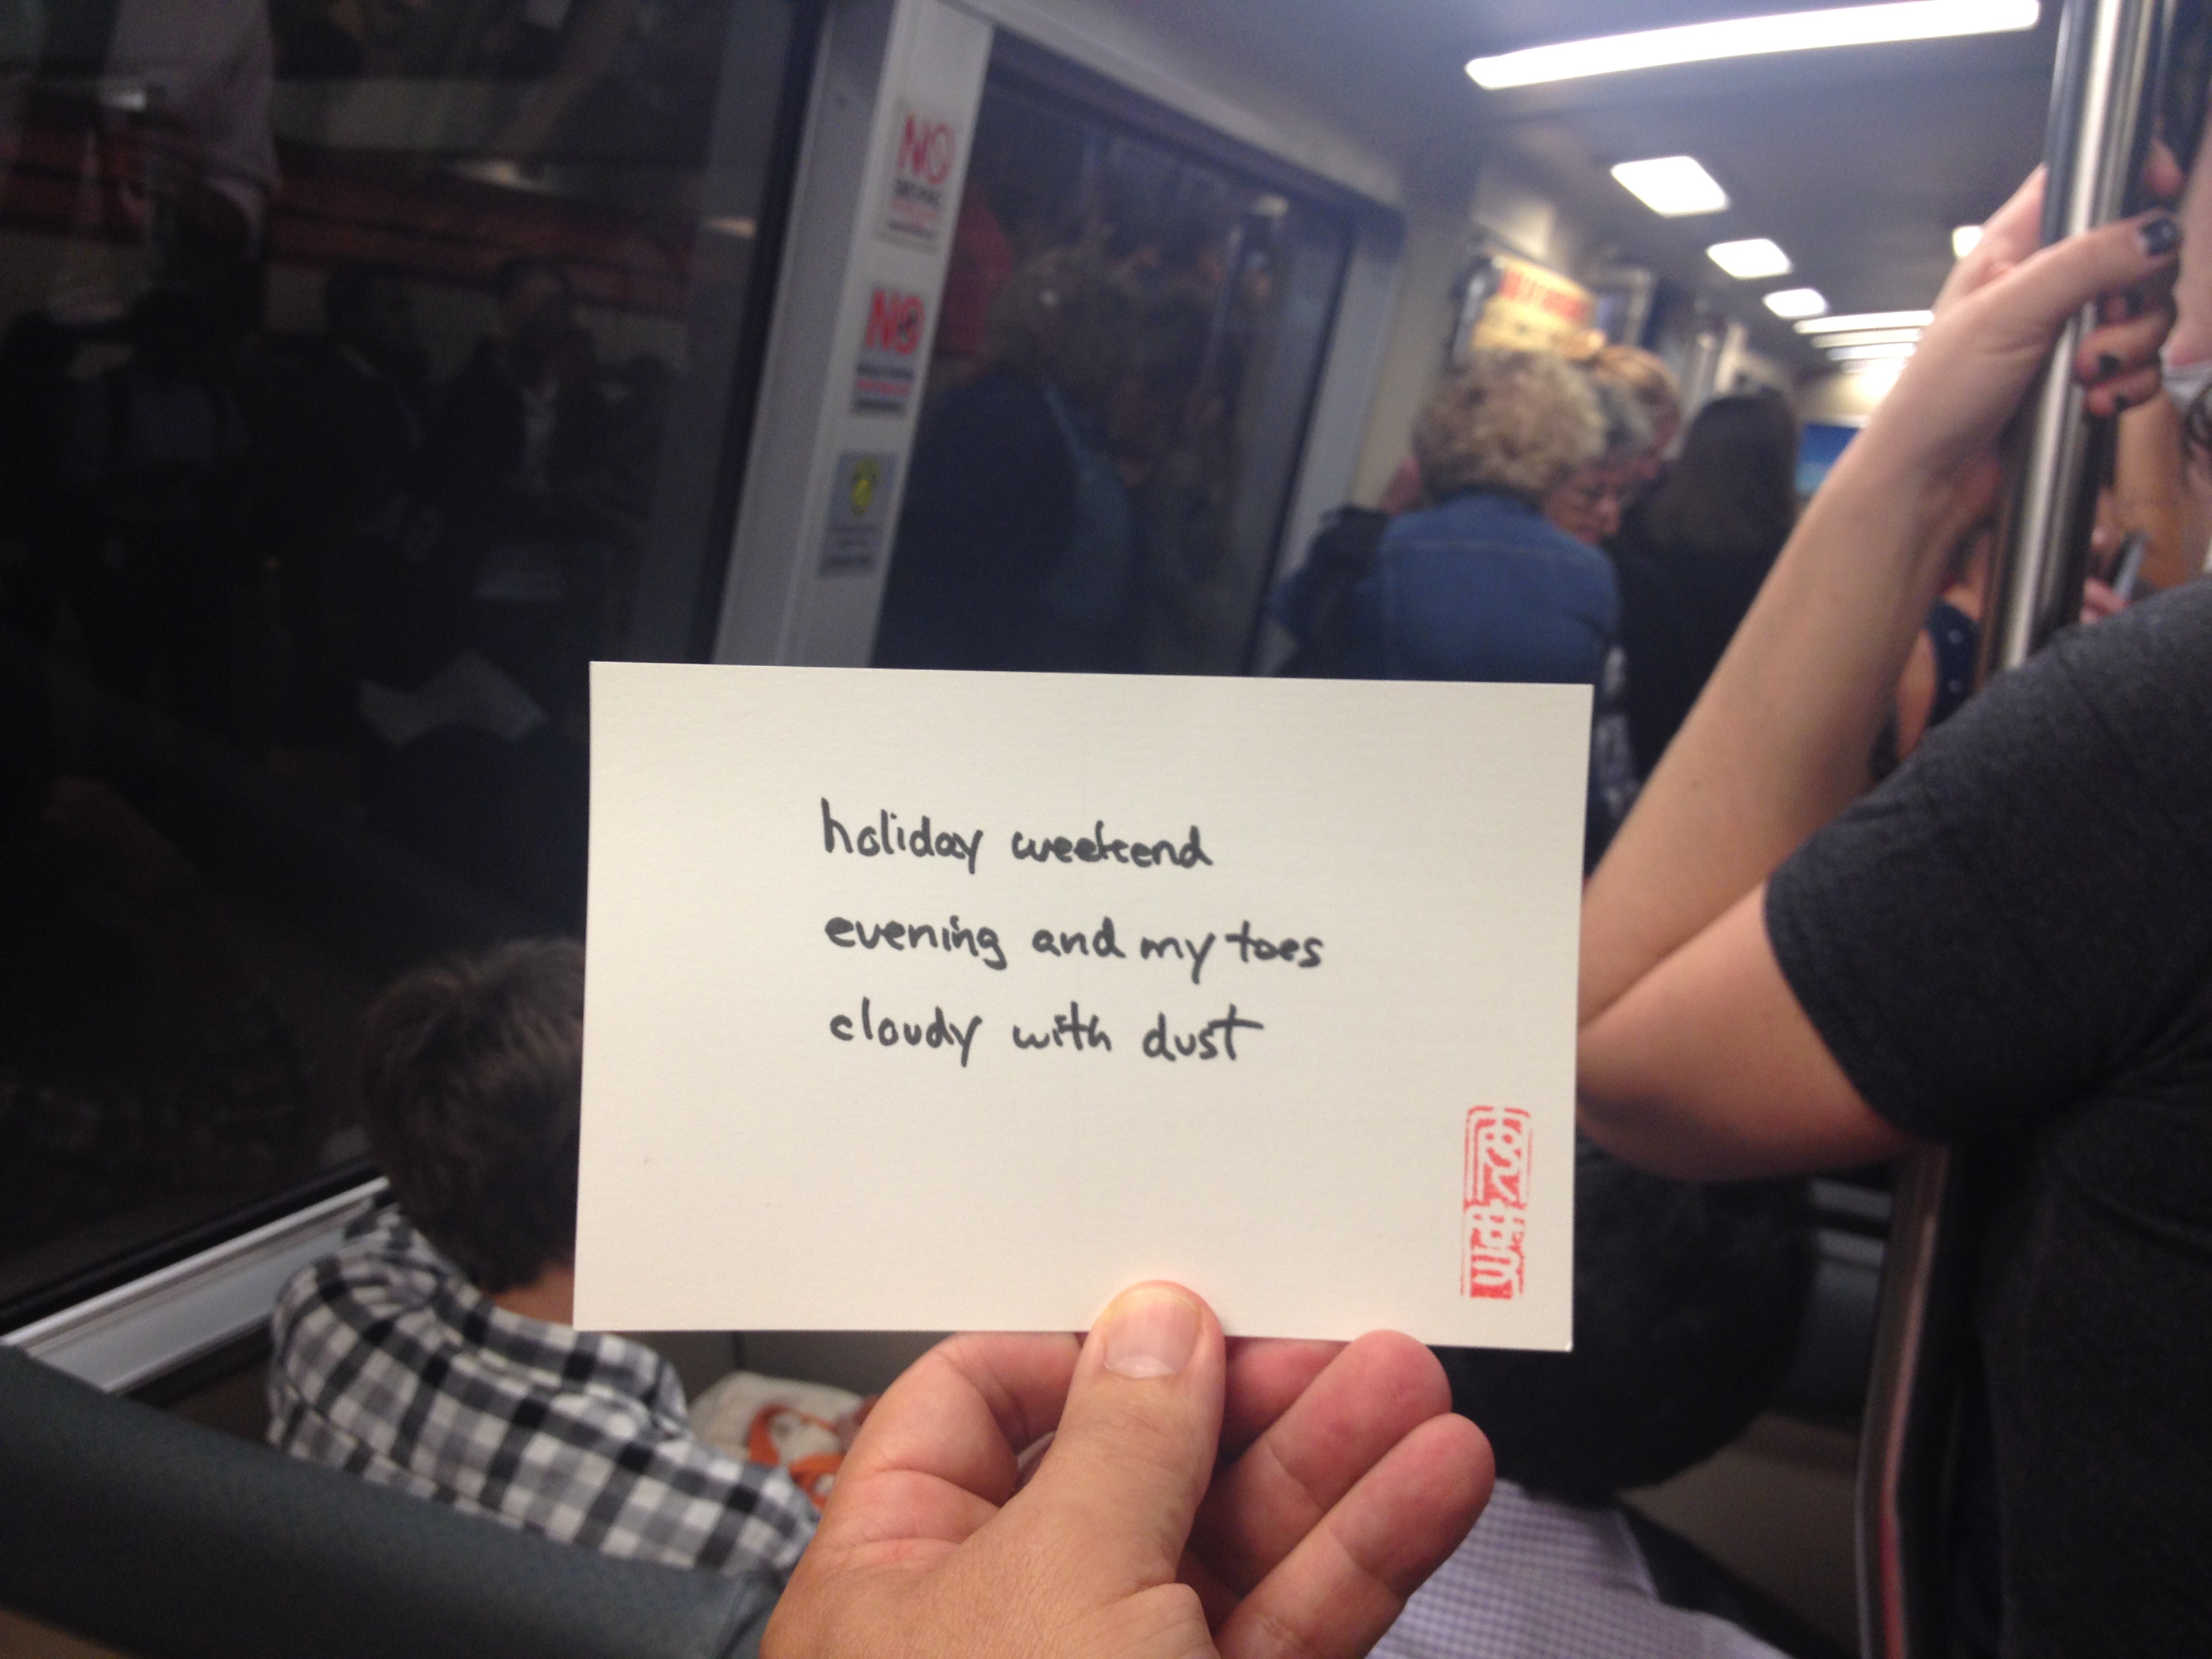 NO
NO
holiday weekend
evening and my toes
cloudy with dust